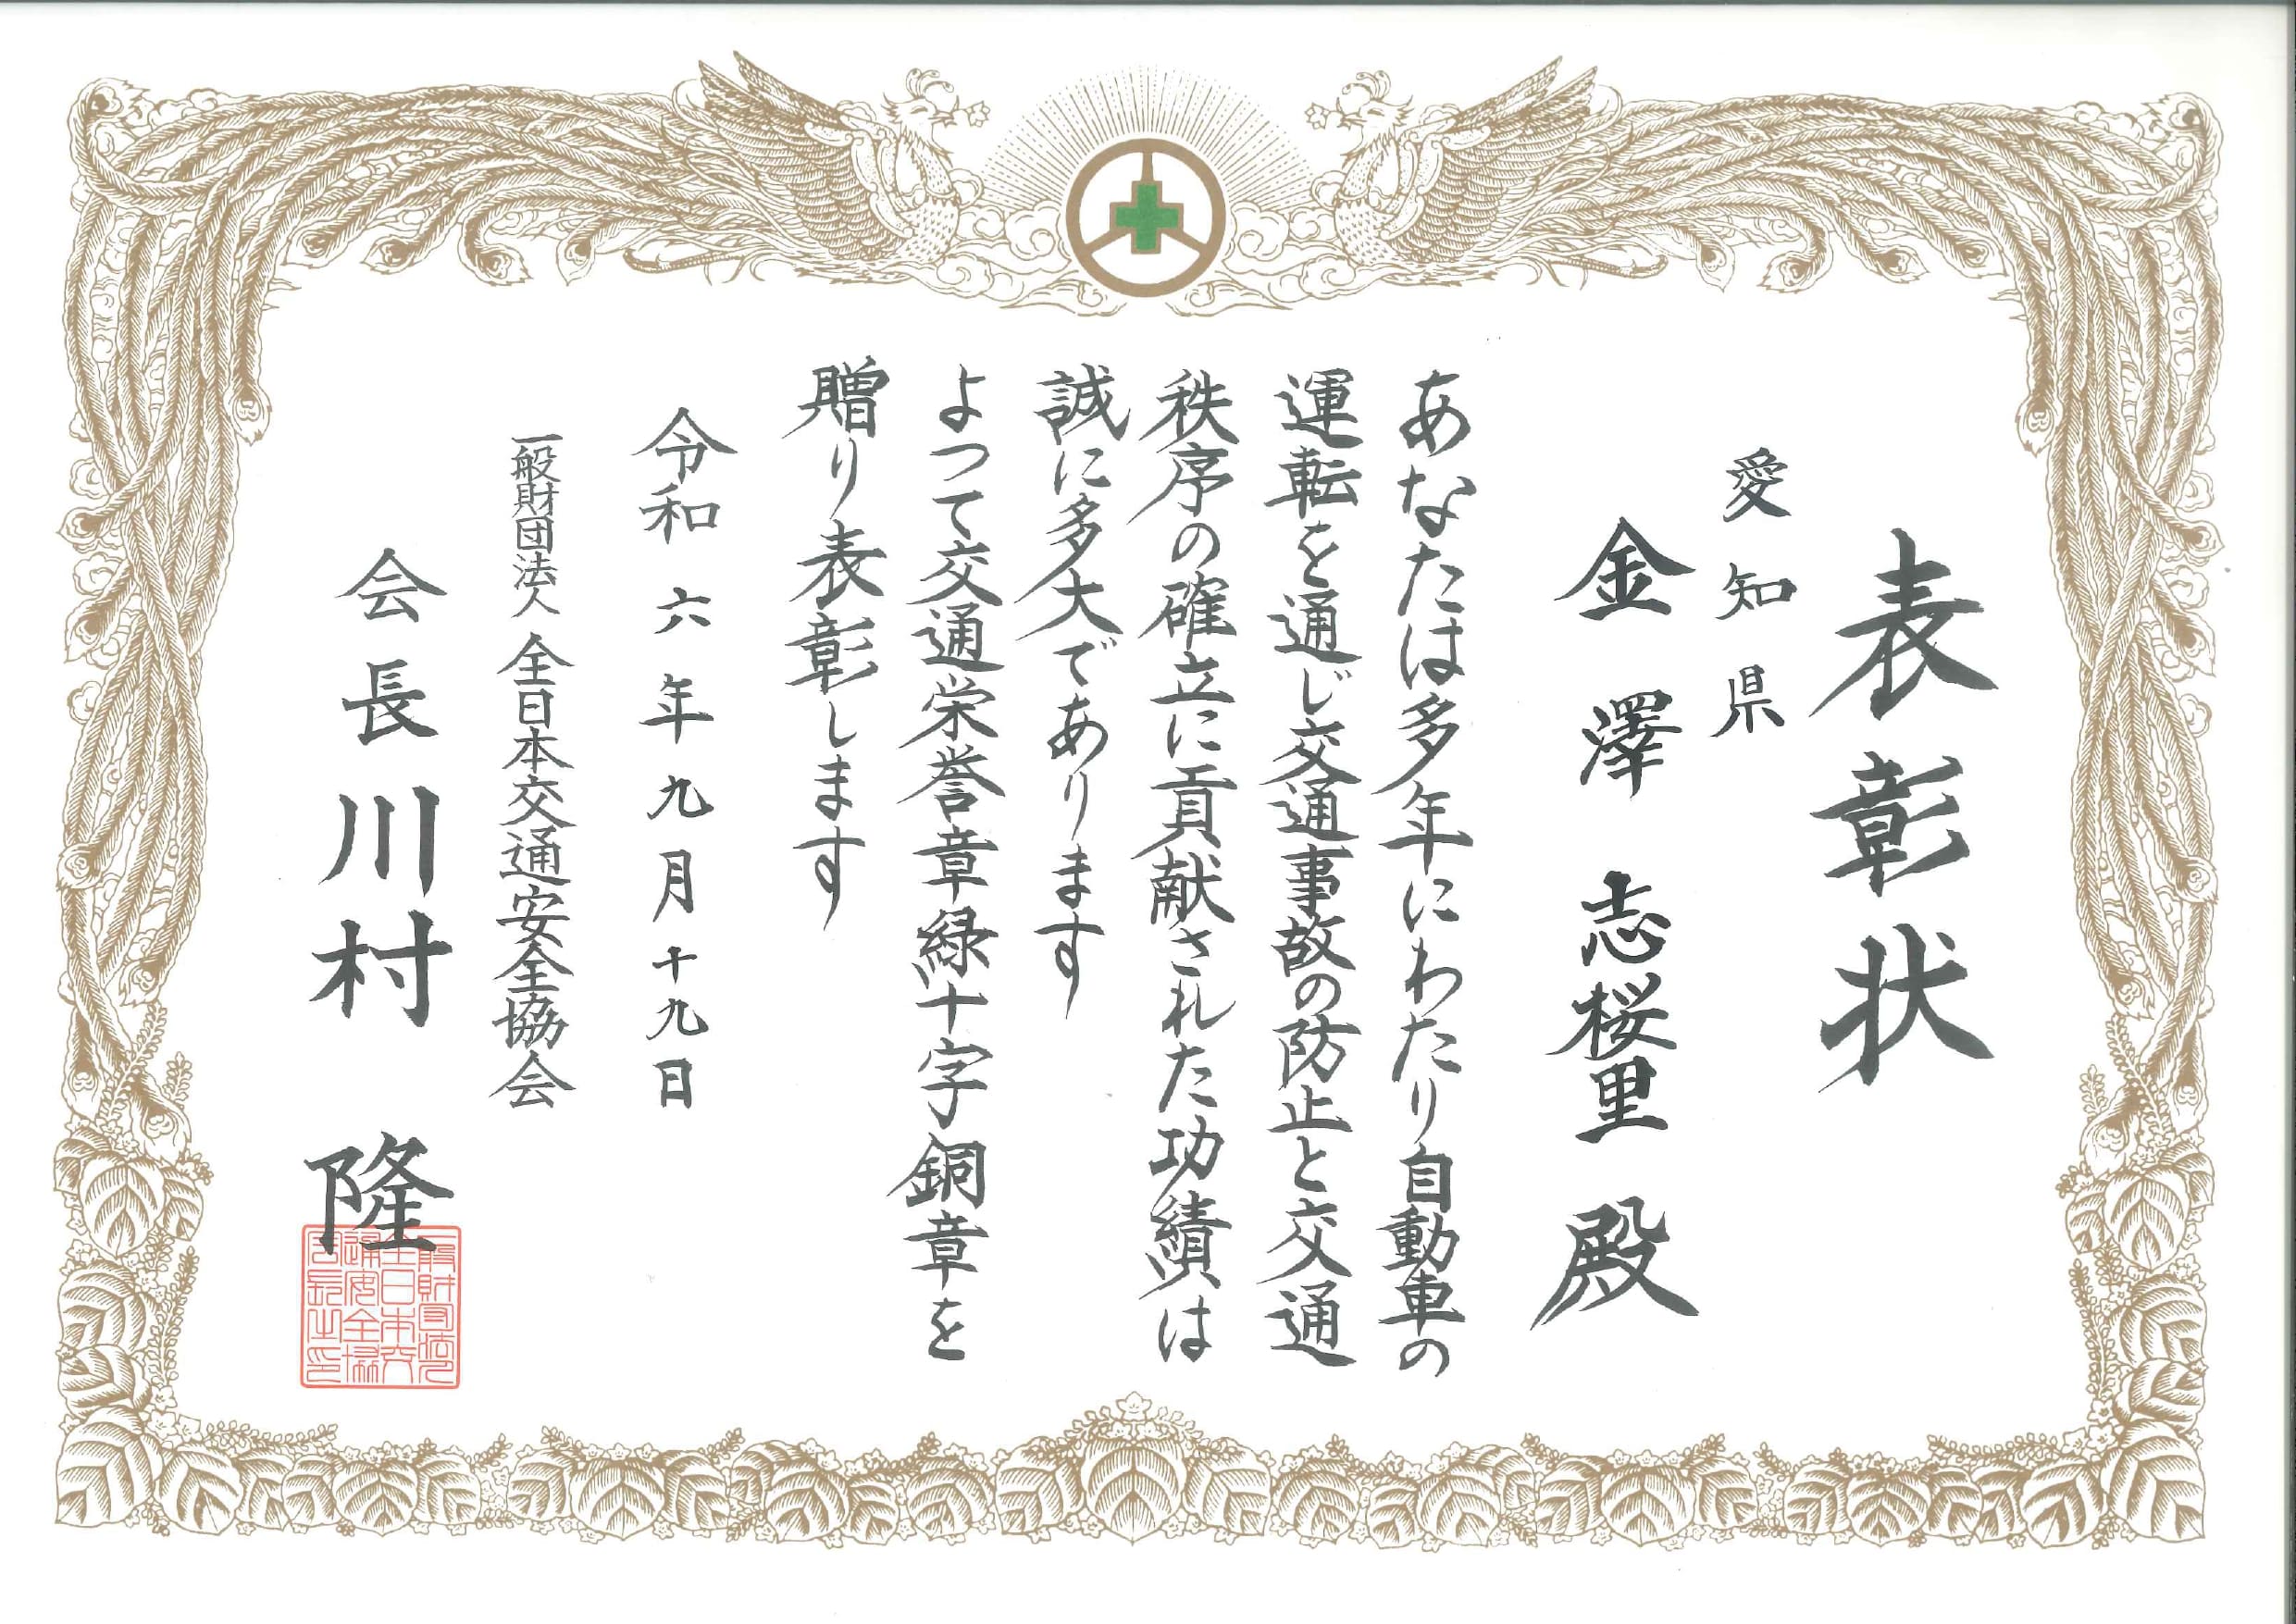 表彰状
愛知県
金澤 志桜里 殿
あなたは多年にわたり自動車の
運転を通じ交通事故の防止と交通
秩序の確立に貢献された功績は
誠に多大であります
よつて交通栄誉章緑十字銅章を
贈り表彰します
令和六年九月十九日
一般財団法人 全日本交通安全協会
会長 川村 隆
一般財団法人
全日本交
通安全協
会長之印